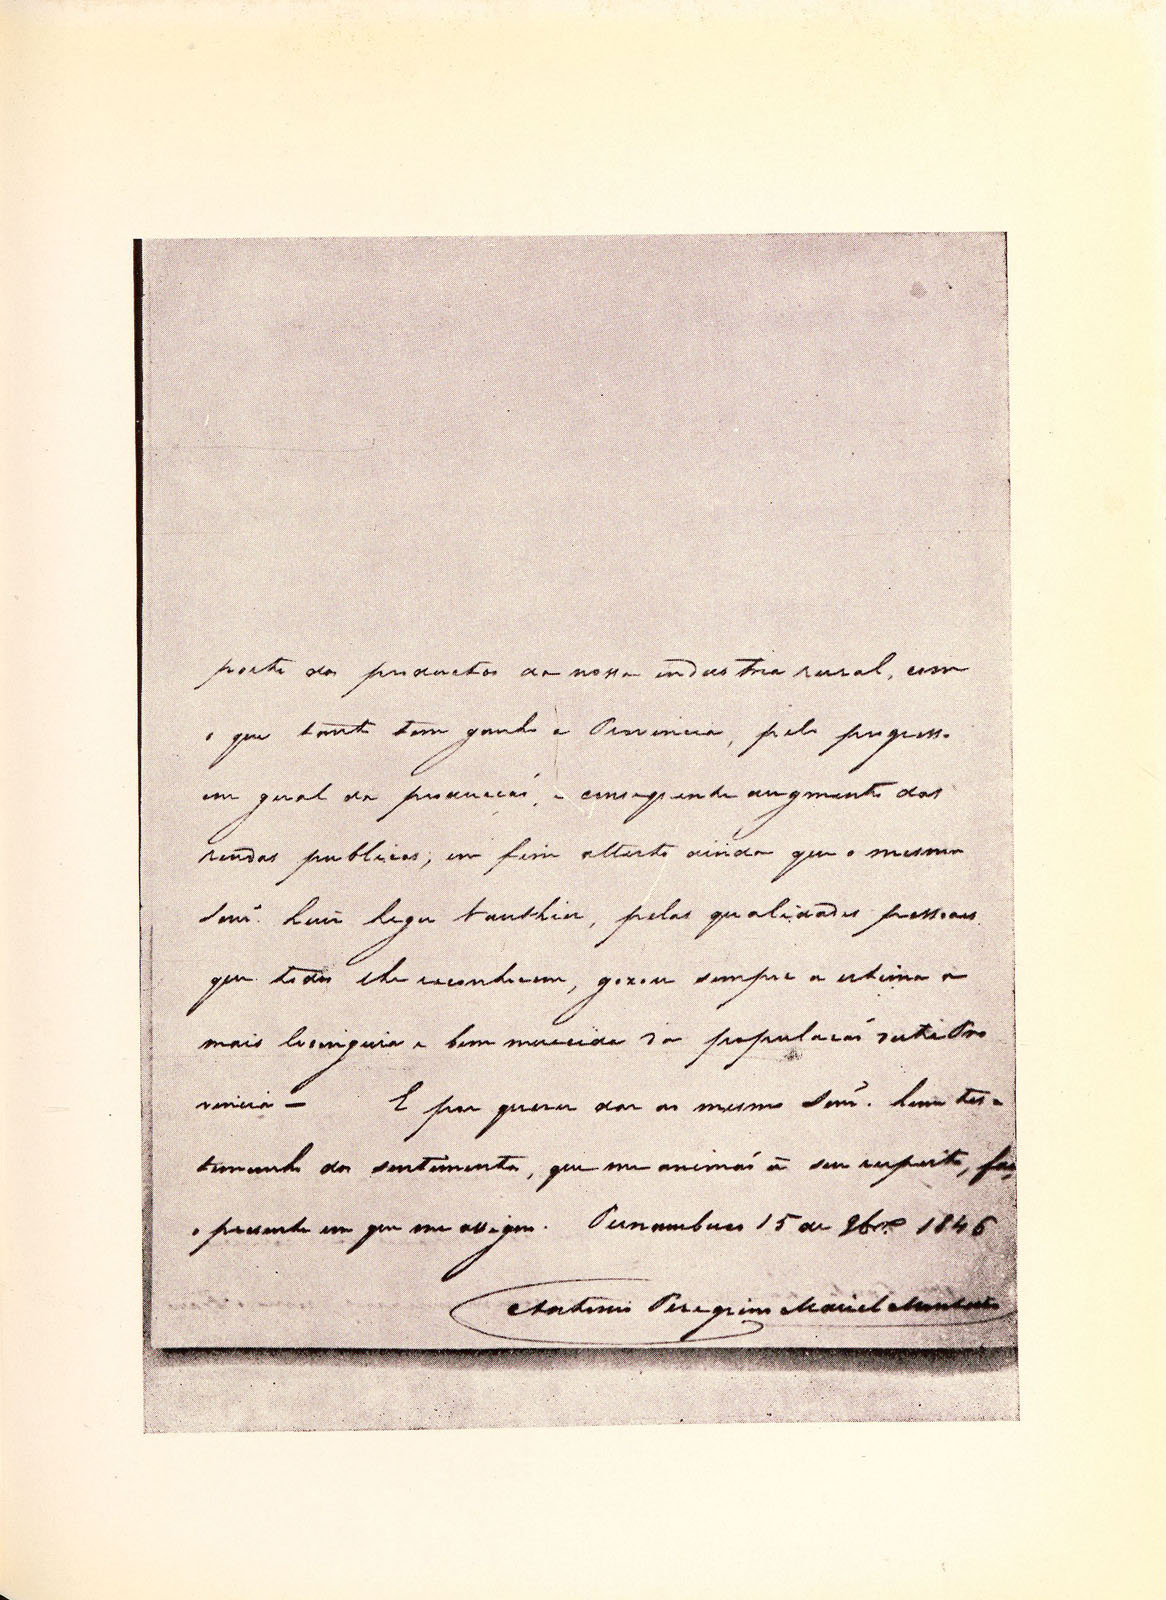 porte dos productos da nossa industria rural, com
o que tanto tem ganho a Provincia, pelo progresso
em geral da producçaó, e consequente augmento das
rendas publicas; em fim attesto ainda que o mesmo
Senr. Luiz Leger Vauthier, pelas qualidades pessoaes
que todos lhe reconhecem, gozou sempre a estima a
mais lisongeira e bem merecida da populaçaó desta Pro
vincia — E por querer dar ao mesmo Senr. hum tes-
temunho dos sentimentos, que me animaó a seu respeito, faço
o presente em que me assigno. Pernambuco 15 de 9bro 1846
Antonio Peregrino Maciel Monteiro